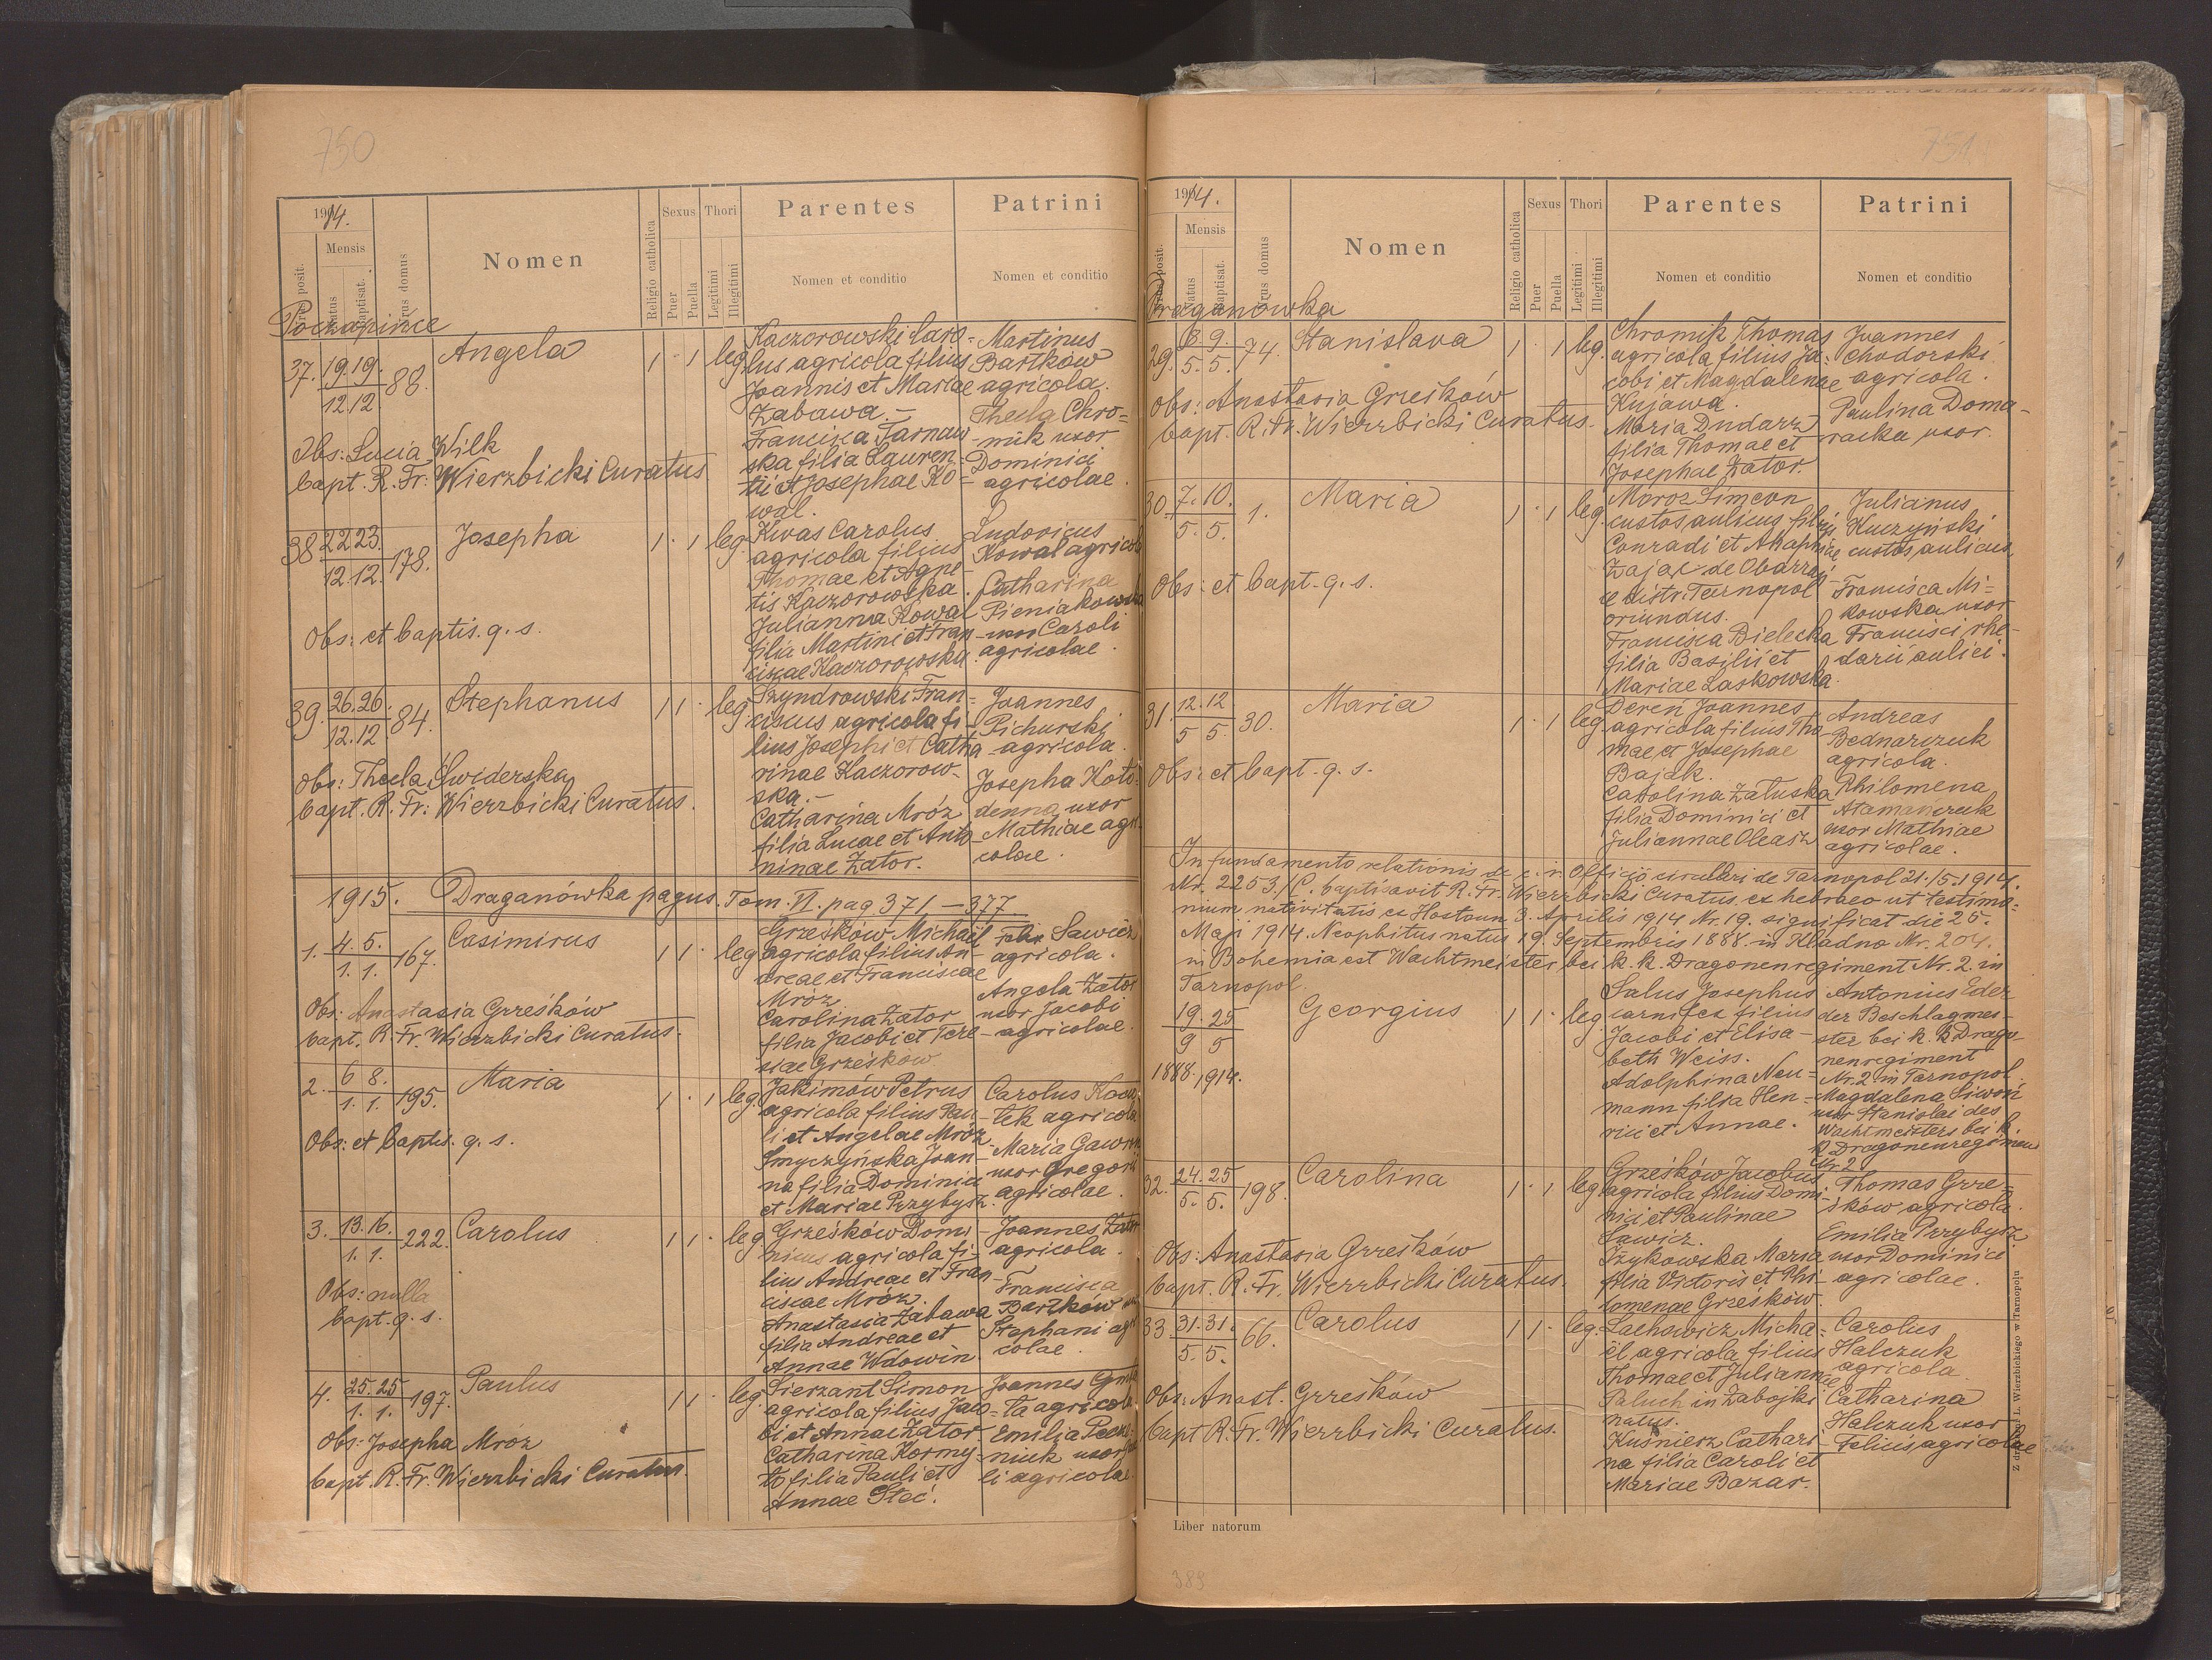 750
1914.
Mensis
Nomen
Religio catholica
Sexus
Puer
Puella
Thori
Legitimi
Illegitimi
Parentes
Nomen et conditio
Patrini
Nomen et conditio
Poczapińce
37. 19. 19. 88. Angela 1 · 1 leg.
12. 12
Kaczorowski Caro-
lus agricola filius
Joannis et Mariae
Zabawa.-
Francisca Tarnaw-
ska filia Lauren-
tii et Josephae Ko-
wal.
Martinus
Bartków
agricola.
Thecla Chro-
miik uxor
Dominici
agricolae.
Obs: Lucia Wilk
bapt. R. Fr: Wierzbicki Curatus
38 22 23. 178. Josepha 1 · 1 leg.
12. 12.
Kwas Carolus
agricola filius
Thomae et Agne-
tis Kaczorowska.
Julianna Kowal
filia Martini et Fran-
ciscae Kaczorowska.
Ludovicus
Kowal agricola
Catharina
Pieniakowska
uxor Caroli
agricolae.
Obs: et baptis. q. s.
39. 26. 26. 84. Stephanus 1 1 · leg
12. 12
Szyndrowski Fran-
ciscus agricola fi-
lius Josephi et Catha
rinae Kaczorow-
ska.-
Catharina Mróz
filia Lucae et Anto-
ninae Zator.
Joannes
Pichurski
agricola.
Josepha Koto-
denna uxor
Mathiae agri-
colae.
Obs: Thecla Swiderska
bapt. R. Fr: Wierzbicki Curatus.
1915. Draganówka pagus. Tom. VI. pag 371 — 377
1. 4. 5. 167. Casimirus 1 1 · leg
1. 1.
Grześków Michael
agricola filius An-
dreae et Franciscae
Mróz
Carolina Zator
filia Jacobi et Tere-
siae Grześkow
Sawicz
agricola.
Angela Zator
uxor Jacobi
agricolae.
Obs: Anastasia Grześków
bapt. R. Fr. Wierzbicki Curatus.
2. 6 8. 195. Maria 1 · 1 leg.
1. 1.
Jakimów Petrus
agricola filius Pau-
li et Angelae Mróz
Smyczyńska Joan-
na filia Dominici
et Mariae Przybysz.
Carolus
agricola
Maria
uxor Gregorii
agricolae.
Obs: et baptis. q. s.
3. 13. 16. 222. Carolus 1 1 · leg
1. 1.
Grześków Domi-
nicus agricola fi-
lius Andreae et Fran-
ciscae Mróz.
Anastasia Zabawa
filia Andreae et
Annae Wdowin
Joannes Zator
agricola.
Francisca
Bartków
Stephani agri
colae.
Obs: nulla
bapt. q. s.
4. 25. 25 197. Paulus 1 1 · leg.
1. 1.
Sierzant Simon
agricola filius Jaco-
bi et Annae Zator
Catharina Kormy-
to filia Pauli et
Annae Steć.
Joannes
agricola
Emilia
niuk uxor
li agricolae.
Obs: Josepha Mróz
bapt. R. Fr. Wierzbicki Curatus.
751
1914.
Mensis
Nomen
Religio catholica
Sexus
Puer
Puella
Thori
Legitimi
Illegitimi
Parentes
Nomen et conditio
Patrini
Nomen et conditio
Draganówka
29. 8. 9. 74. Stanislava 1 · 1 leg.
5. 5.
Chromik Thomas
agricola filius Ja-
cobi et Magdalenae
Kujawa.
Maria Dudarz
filia Thomae et
Josephae Zator.
Joannes
Chodorski
agricola.
Paulina Doma-
racka uxor.
Obs: Anastasia Grześków
bapt. R. Fr. Wierzbicki Curatus.
30. 7. 10. 1. Maria 1 · 1 leg.
5. 5.
Moroz Simeon
custos aulicus filius
Conradi et Ahaphiae
Zając de
distr. Tarnopol
oriundus.
Francisca Bielecka
filia Basilii et
Mariae Laskowska.
Julianus
Kuczyński
custos aulicus.
Francisca Mi-
kowska uxor
Francisci rhe-
darii aulici.
Obs: et bapt. q. s.
31. 12. 12 30. Maria 1 · 1 leg
5 5.
Dereń Joannes
agricola filius Tho-
mae et Josephae
Bajak.
Carolina Zaluska
filia Dominici et
Juliannae Oleasz
Andreas
Bednarczuk
agricola.
Philomena
Atamańczuk
uxor Mathiae
agricolae.
Obs: et bapt. q. s.
In fundamento relationis de c. r. Officio circulari de Tarnopol 21./5. 1914.
Nr. 2253./C. baptisavit R. Fr. Wierzbicki Curatus ex hebraeo ut testimo-
nium nativitatis ex Hostoun 3. Aprilis 1914 Nr. 19. significat die 25.
Maji 1914. Neophitus natus 19. Septembris 1888. in Kladno Nr. 204.
in Bohemia est Wachtmeister bei k. k. Dragonenregiment Nr. 2. in
Tarnopol.
19. 25 Georgius 1 1 · leg.
9 5
1888. 1914.
Salus Josephus
carnifex filius
Jacobi et Elisa-
beth Weiss.
Adolphina Neu-
mann filia Hen-
rici et Annae.
Antonius Eder
der Beschlagmei-
ster bei k. k. Drago-
nenregiment
Nr. 2 in Tarnopol
Magdalena Siwoń
uxor Stanislai des
Wachtmeisters bei k.
k Dragonenregimen
Nr. 2
32. 24. 25 198. Carolina 1 · 1 leg
5. 5.
Grześków Jacobus
agricola filius Domi-
nici et Paulinae
Sawicz.
Zykowska Maria
filia Victoris et Phi-
lomenae Grześków.
Thomas Grze-
śków agricola.
Emilia Przybysz
uxor Dominici
agricolae.
Obs: Anastasia Grześków
bapt. R. Fr. Wierzbicki Curatus.
33 31. 31. 66. Carolus 1 1 · leg.
5. 5.
Lachowicz Micha-
ël agricola filius
Thomae et Juliannae
Paluch in Zabojki
natus.
Kuśnierz Cathari-
na filia Caroli et
Mariae Bazar.
Carolus
Halczuk
agricola
Catharina
Halczuk uxor
Felicis agricolae
Obs: Anast. Grześków
bapt R. Fr. Wierzbicki Curatus.
Liber natorum
Z druk. L. Wierzbickiego w Tarnopolu
389